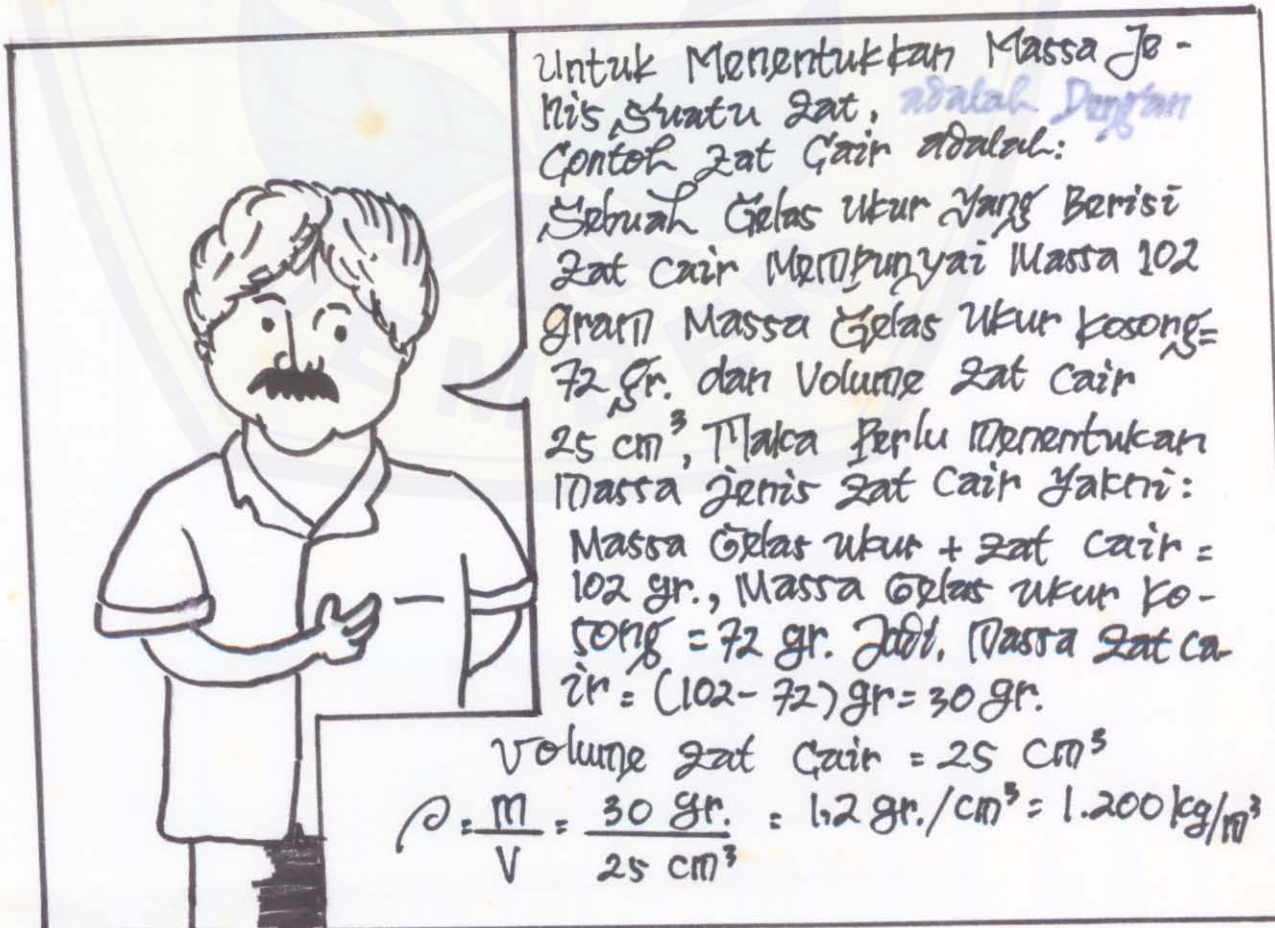 Untuk Menentukkan Massa Je-
nis Suatu Zat. adalah Dengan
Contoh Zat Cair adalah:
Sebuah Gelas Ukur Yang Berisi
Zat Cair Mempunyai Massa 102
gram Massa Gelas Ukur Kosong=
72 gr. dan Volume Zat Cair
25 cm³, Maka Perlu Menentukan
Massa Jenis Zat Cair Yakni:
Massa Gelas Ukur + Zat Cair =
102 gr., Massa Gelas Ukur Ko-
song = 72 gr. Jadi, Massa Zat ca-
ir = (102-72) gr = 30 gr.
Volume Zat Cair = 25 cm³
ρ = m/V = 30 gr./25 cm³ = 1,2 gr./cm³ = 1.200 kg/m³